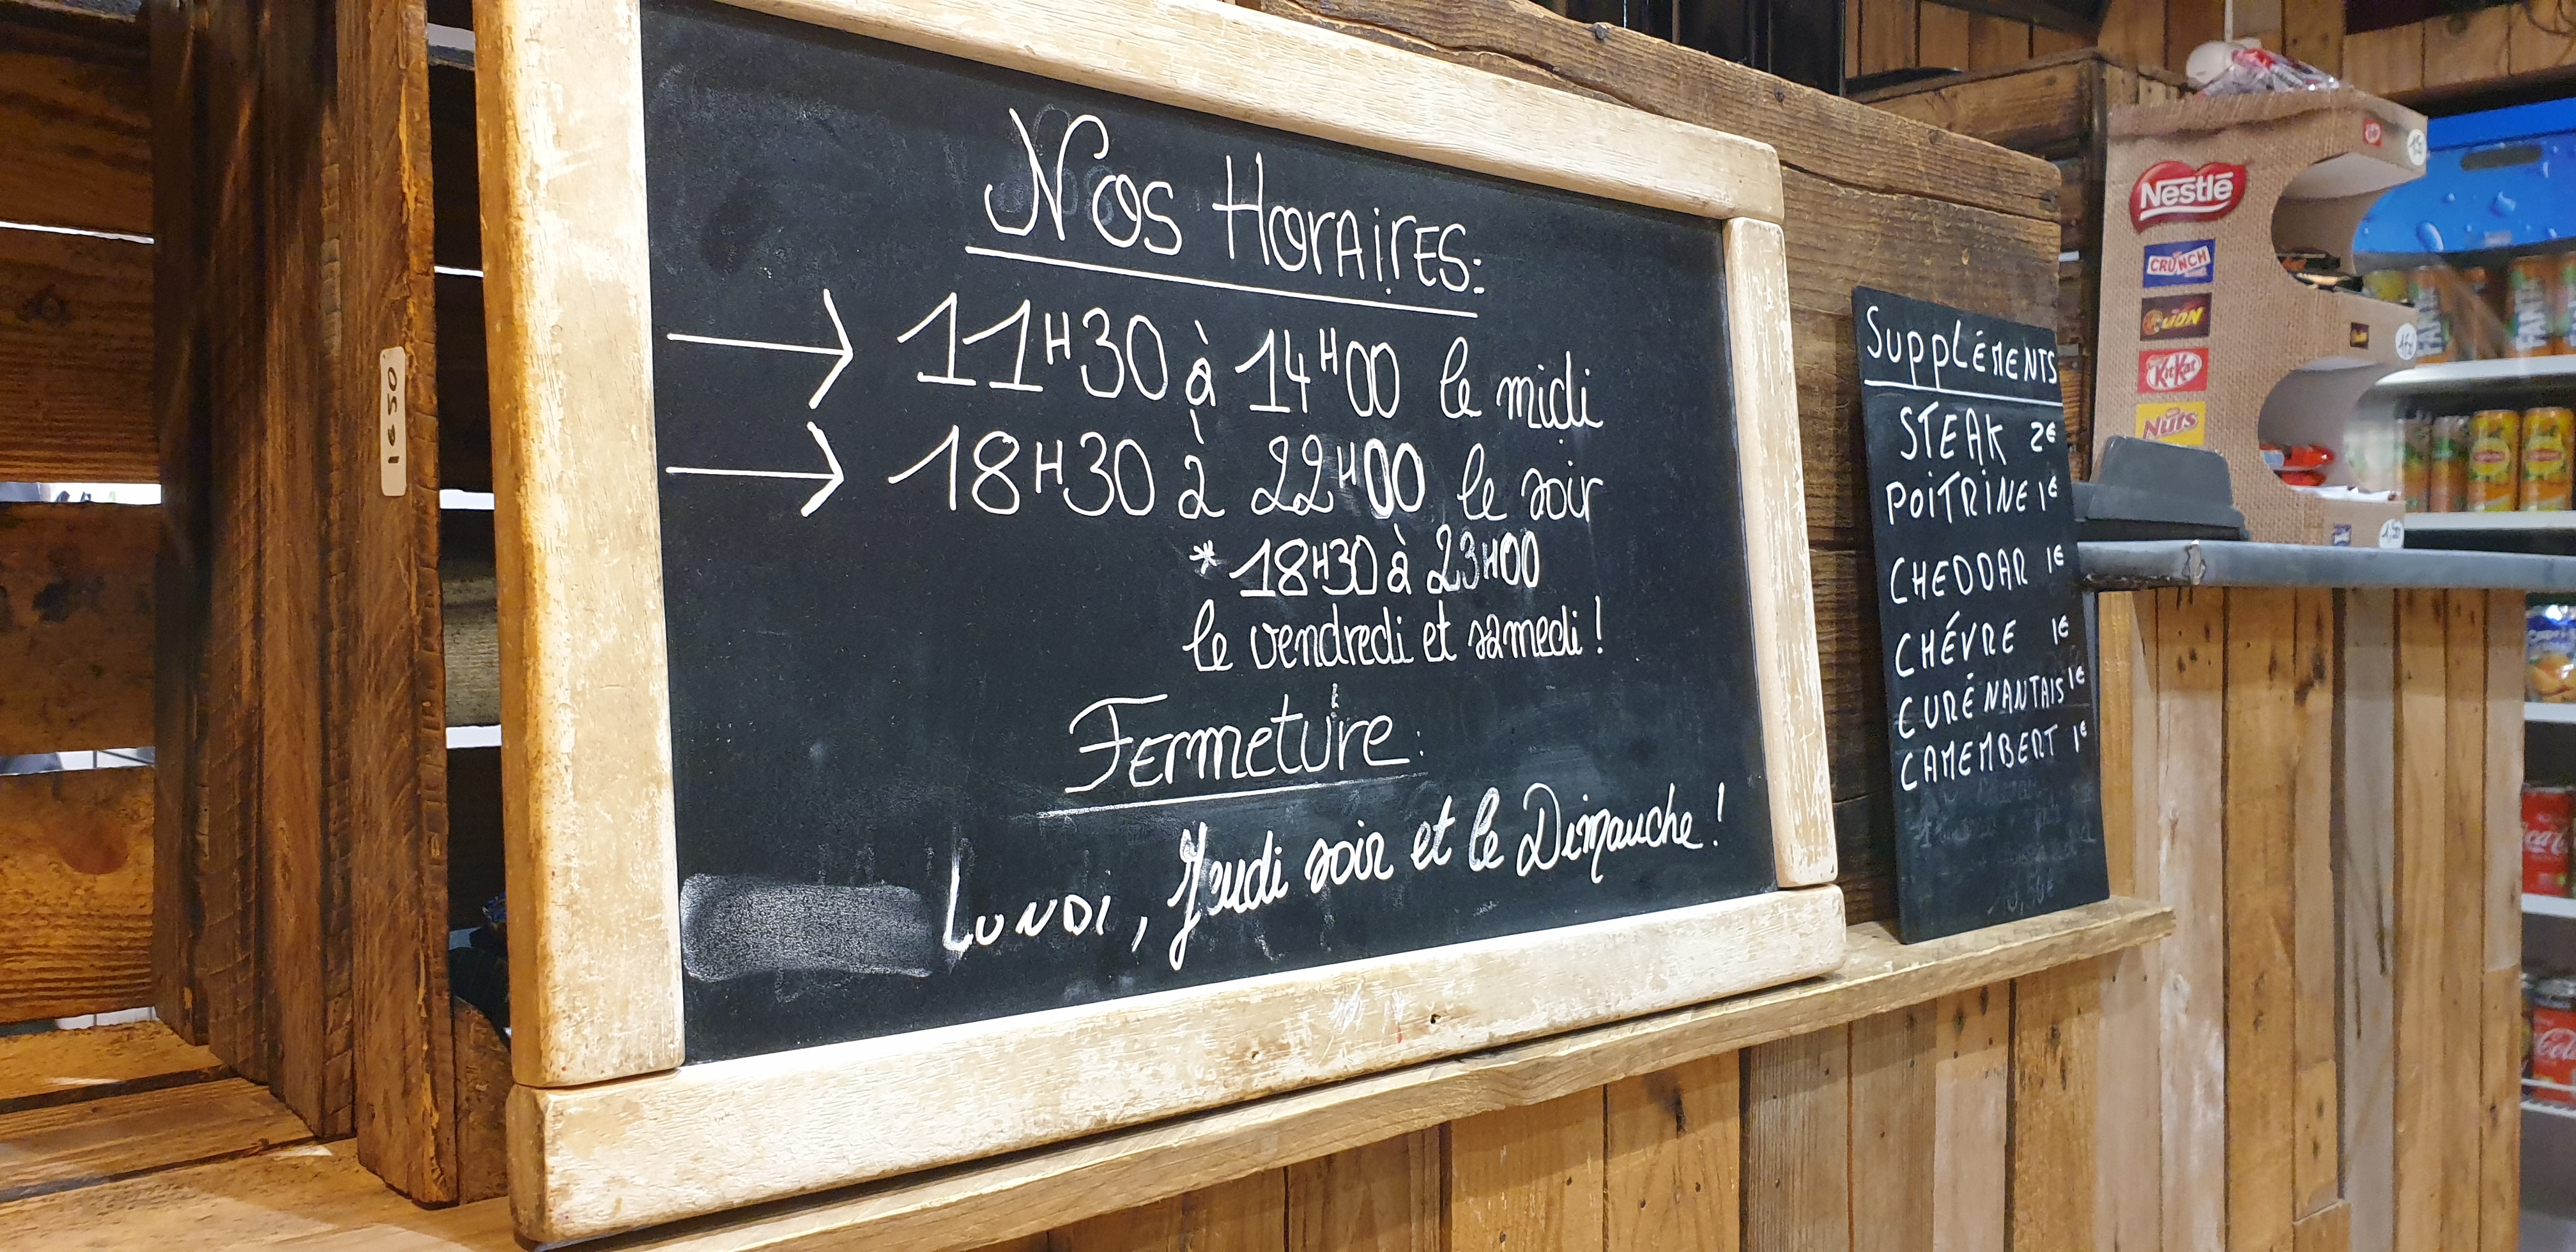 Nos Horaires:
11H30 à 14H00 le midi
18H30 à 22H00 le soir
* 18H30 à 23H00
le vendredi et samedi !
Fermeture:
Lundi, Jeudi soir et le Dimanche !
1650
Suppléments
STEAK 2€
POITRINE 1€
CHEDDAR 1€
CHÉVRE 1€
CURÉ NANTAIS 1€
CAMEMBERT 1€
Nestlé
CRUNCH
LION
KitKat
Nuts